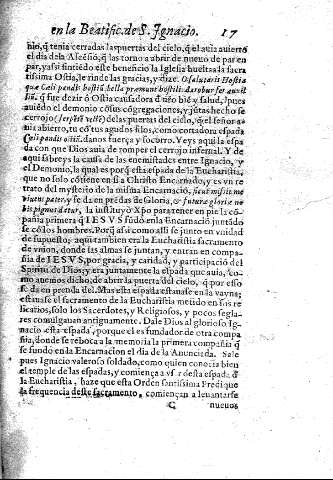 en la Beatific. de S. Ignacio. 17
nio, q̃ tenia cerradas las puertas del cielo, q̃ el auia auierto
el dia de la Ascēsiō, q̃ las torno a abrir de nueuo de par en
par, y assi sintiẽdo este beneficio la Iglesia bueltaa da sacra
tissima Ostia, le rinde las gracias, y dize. O salutaris Hostia
quæ Cœli pandis hostiū, bella præmunt hostili: da robur fer auxi
liū. q̃ fue dezir ô Ostia causadora d̃ nr̃o biẽ y salud, pues
auiẽdo el demonio
cerrojo (serpẽs vectis) delas puertas del cielo, q̃ el señor te
nia abierto, tu cō tus agudos filos, como cortadora espada
Cœli pandis ostiū. danos fuerça y socorro. Veys aqui la espa
da con que Dios auia de romper el cerrojo infernal. Y de
aqui sbreys la causa de las enemistades entre Ignacio, y
el Demonio, la qual es porq̃ esta espada de la Eucharistia,
que no solo cōtiene en si a Christo Encarnado, y es vn re
trato del mysterio de la misma Encarnació,
y se da en prẽdas de Gloria, & futuræ gloriæ no
bis pignus datur, la instituyò Xp̃o para tener en pie la cō
pañia primera q̃ IESVS fudò en la Encarnació jun̄tádo
se cō los hombres. Porq̃ assi como alli se junto en vnidad
de supuesto, aqui tambien era la Eucharistia sacramento
de vnion, donde las almas se juntan, y entran en compa
ñia de IESVS, por gracia, y caridad, y participació del
Spiritu de Dios, y era juntamente la espada que auia, co
mo auemos dicho, de abrir la puerta del cielo, q̃ por esso
se da en prenda del. Mas esta espada estauase en la vayna;
estauase el sacramento de la Eucharistia metido en los re
licarios, solo los Sacerdotes, y Religiosos, y pocos segla-
res comulgauan antiguamente. Dale Dios al glorioso Ig
nacio esta espada, porque el es fundador de otra compa
ñia, donde se reboca a la memoria la primera compañia q̃
se fundò en la Encarnacion el dia de la Anunciada. Sale
pues Ignacio valeroso soldado, como quien conocia bien
el temple de las espadas, y comiença a vsar desta espada d̃
la Eucharistia, haze que esta Orden santissima Predique
la frequencia deste sacramento, comiençan a leuantarse
C nueuos